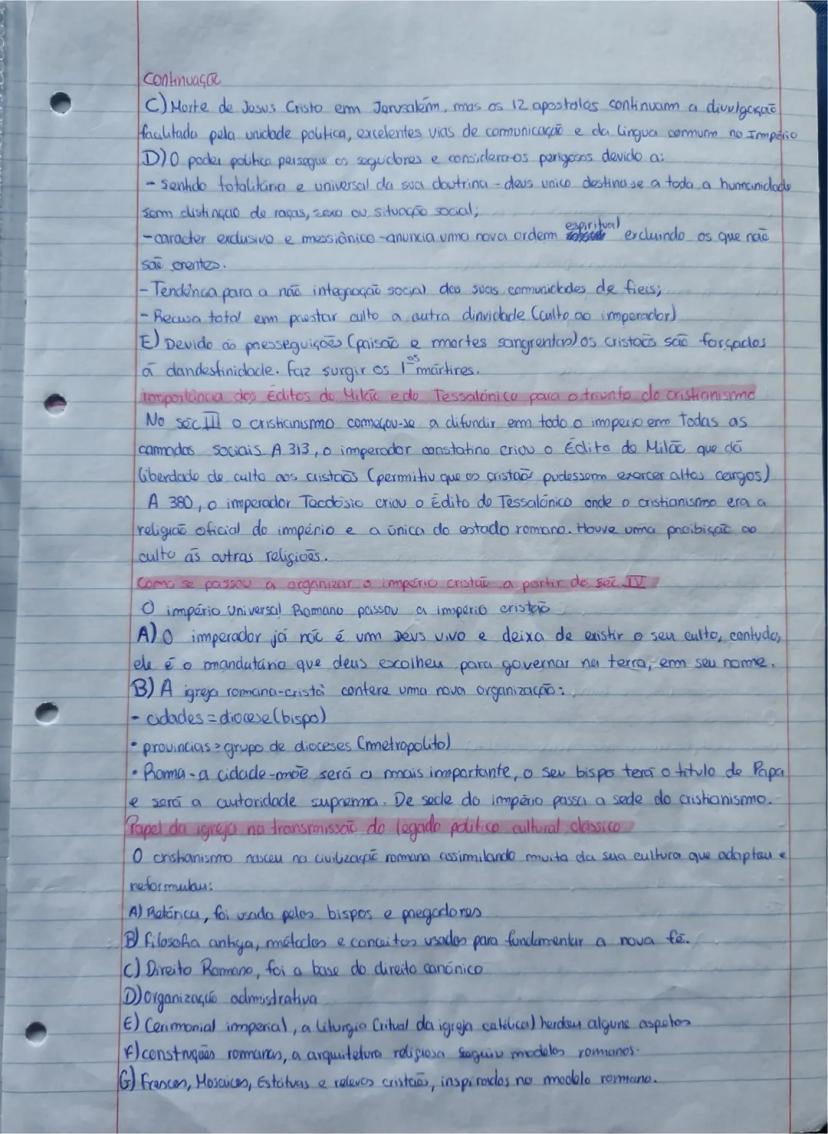 Continuação
C) Morte de Jesus Cristo em Jerusalém, mas os 12 apostolos continuam a divulgação
facilitada pela unidade politica, excelentes vias de comunicação e da lingua comum no Império
D) O poder politico persegue os seguidores e considera-os perigosos devido a:
- sentido totalitário e universal da sua doutrina - deus unico destina-se a toda a humanidade
sem distinção de raças, sexo ou situação social;
- caracter exclusivo e messiânico - anuncia uma nova ordem espiritual excluindo os que não
são crentes.
- Tendência para a não integração social das suas comunidades de fieis;
- Recusa total em prestar culto a outra dinvidade (culto ao imperador)
E) Devido ás presseguições (prisão e mortes sangrentas) os cristãos são forçados
á clandestinidade. faz surgir os 1os mártires.
Importância dos Éditos de Milão e de Tessalónica para o triunfo do cristianismo
No séc III o cristianismo começou-se a difundir em todo o imperio em todas as
camadas sociais A 313, o imperador constatino criou o Édito de Milão que dá
liberdade de culto aos cristãos (permitiu que os cristãos pudessem exercer altos cargos)
A 380, o imperador Teodósio criou o Édito de Tessalónica onde o cristianismo era a
religião oficial do império e a única do estado romano. Houve uma proibição ao
culto ás outras religiões.
Como se passou a organizar o império cristão a partir de séc IV
O império Universal Romano passou a imperio cristão
A) O imperador já não é um Deus vivo e deixa de existir o seu culto, contudo,
ele é o mandatário que deus escolheu para governar na terra, em seu nome.
B) A igreja romana-cristã confere uma nova organização:
- cidades = diocese (bispo)
• provincias = grupo de dioceses (metropolito)
• Roma - a cidade-mãe será a mais importante, o seu bispo terá o titulo de Papa
e será a autoridade suprema. De sede do império passa a sede do cristianismo.
Papel da igreja na transmissão do legado politico cultural clássico
O cristianismo nasceu na civilização romana assimilando muita da sua cultura que adaptou e
reformulou:
A) Retórica, foi usada pelos bispos e pregadores
B) Filosofia antiga, métodos e conceitos usados para fundamentar a nova fé.
C) Direito Romano, foi a base do direito canónico
D) Organização admistrativa
E) Cerimonial imperial, a liturgia (ritual da igreja católica) herdou alguns aspetos
F) construções romanas, a arquitetura religiosa seguiu modelos romanos.
G) Frescos, Mosaicos, Estátuas e relevos cristãos, inspirados no modelo romano.